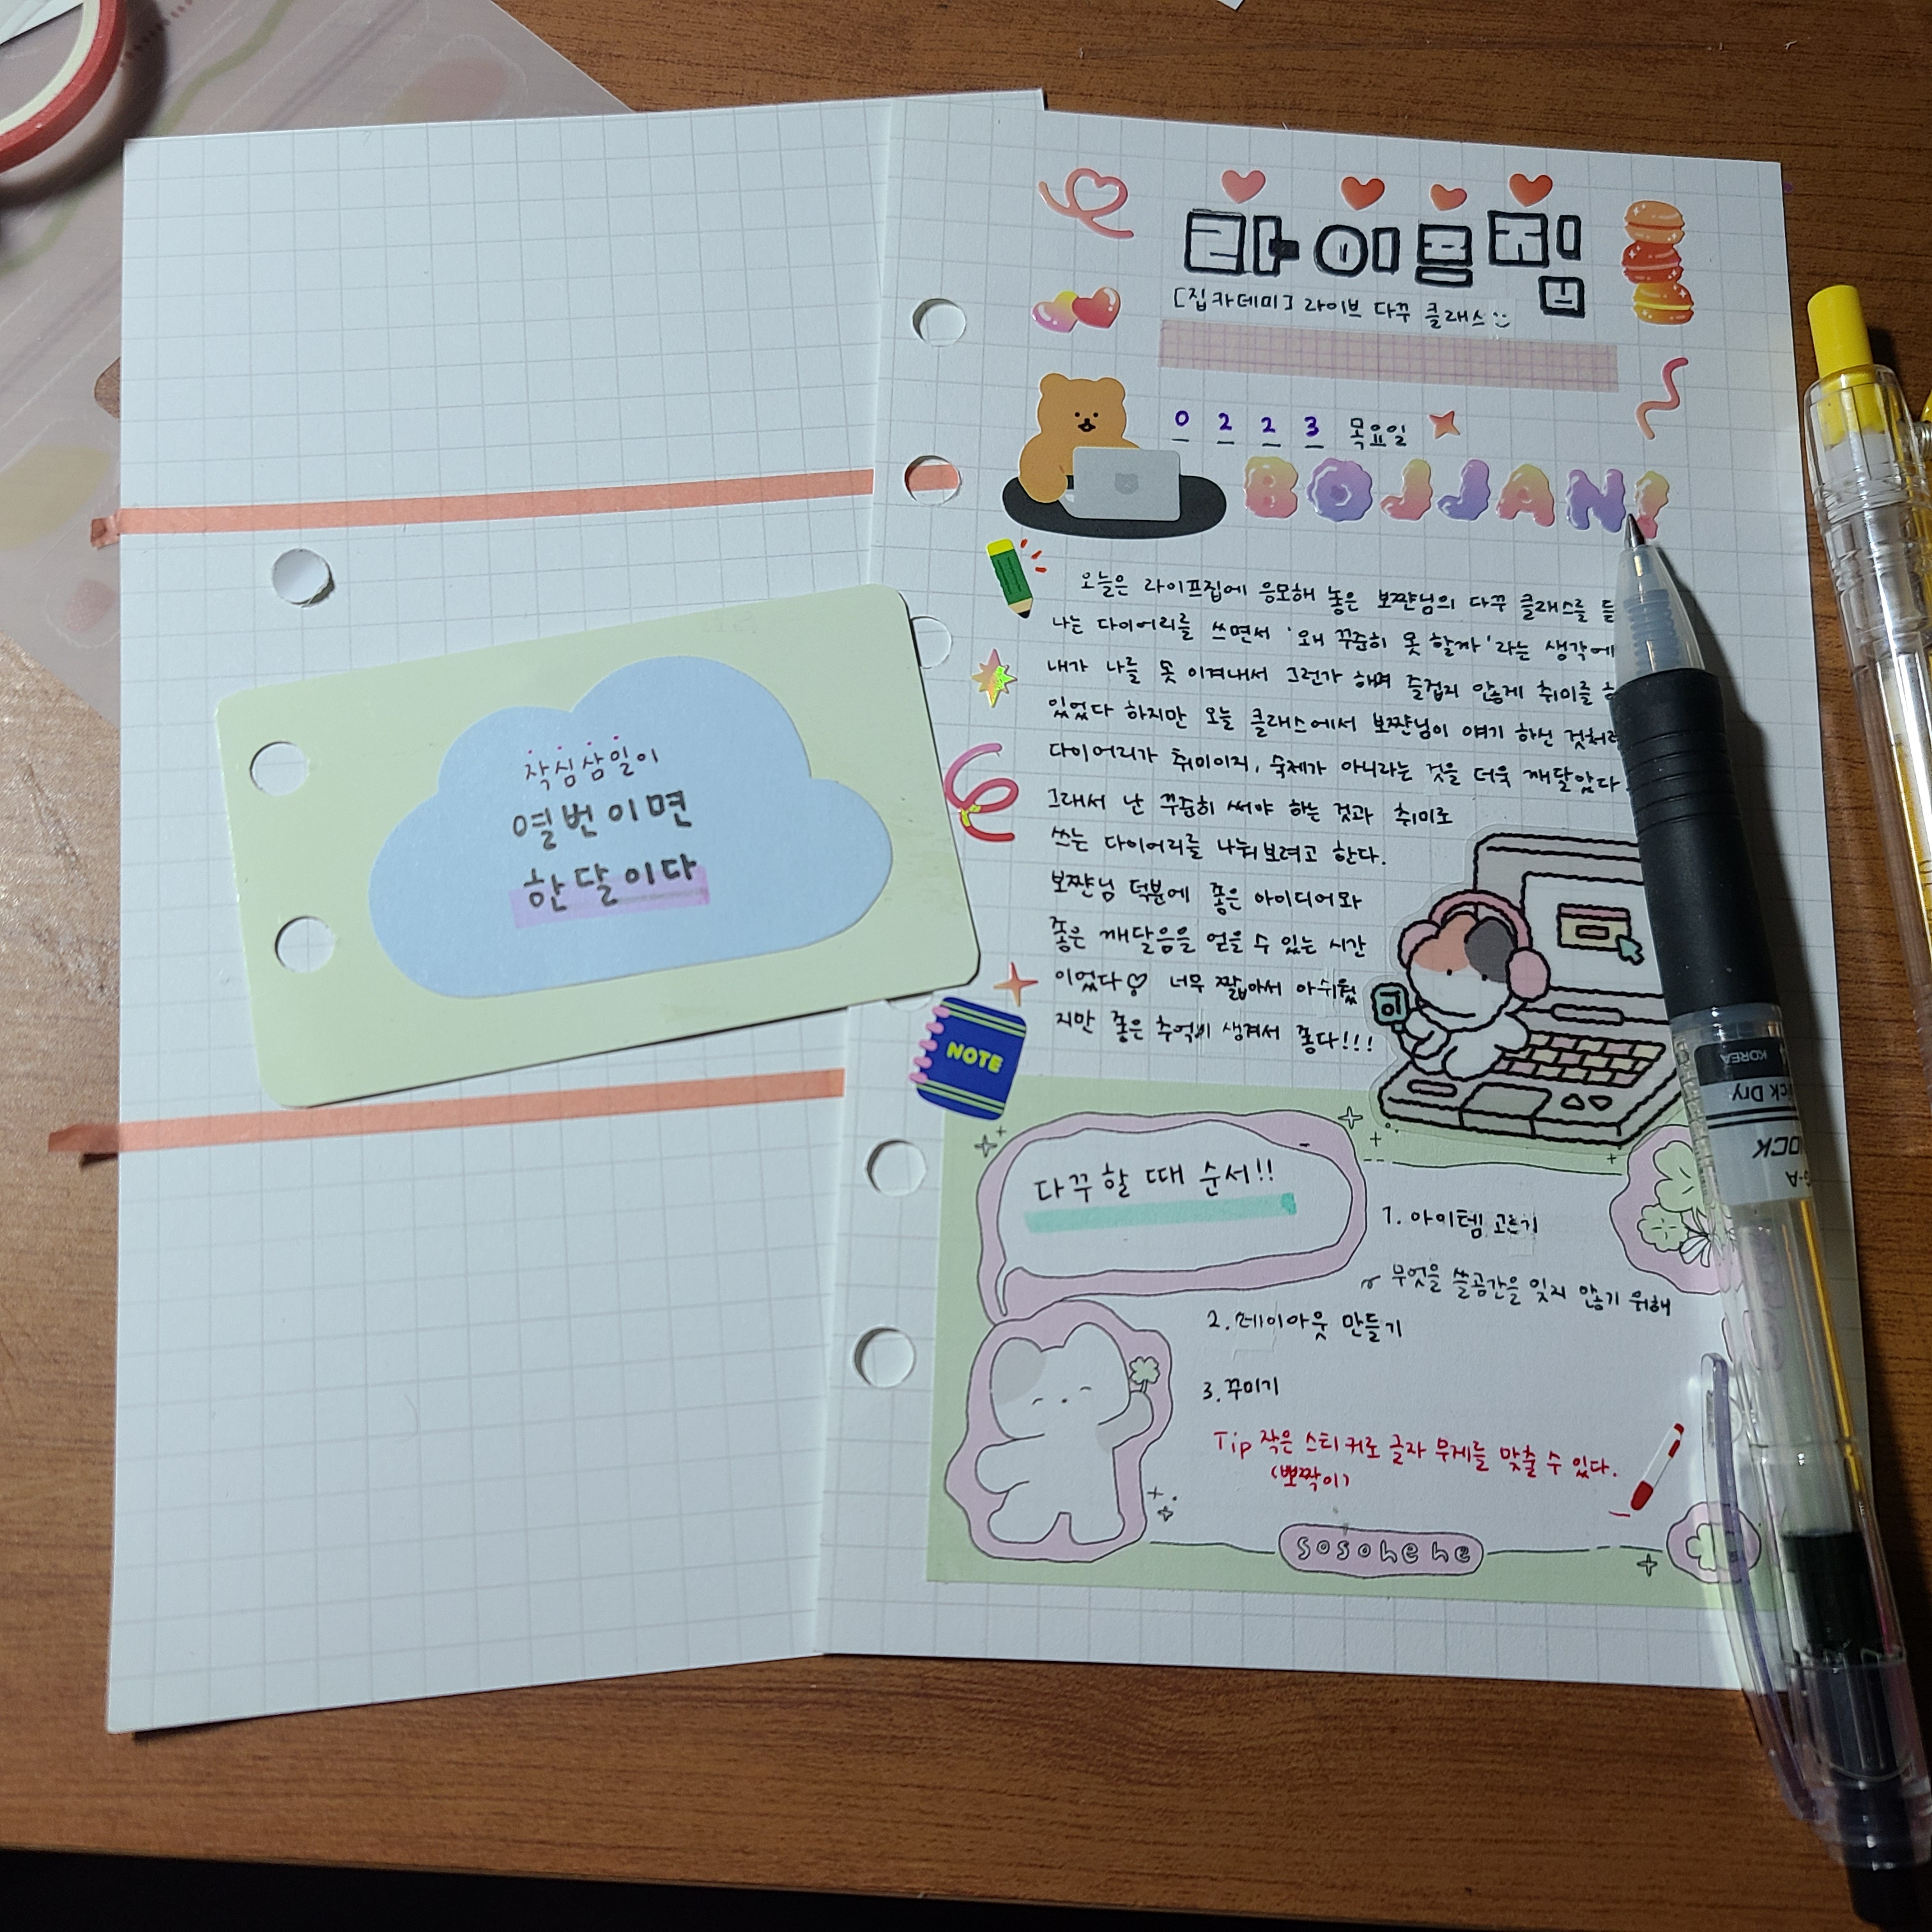 작심삼일이
열번이면
한달이다
라이프집
[집카데미] 라이브 다꾸 클래스
0 2 2 3 목요일
BOJJAN!
오늘은 라이프집에 응모해 놓은 보쨘님의 다꾸 클래스를
나는 다이어리를 쓰면서 '왜 꾸준히 못 할까'라는 생각에
내가 나를 못 이겨내서 그런가 해며 즐겁지 않게 취미를
있었다 하지만 오늘 클래스에서 보쨘님이 얘기 하신 것처럼
다이어리가 취미이지, 숙제가 아니라는 것을 더욱 깨달았다.
그래서 난 꾸준히 써야 하는 것과 취미로
쓰는 다이어리를 나눠보려고 한다.
보쨘님 덕분에 좋은 아이디어와
좋은 깨달음을 얻을 수 있는 시간
이었다♡ 너무 짧아서 아쉬웠
지만 좋은 추억이 생겨서 좋다!!!
NOTE
다꾸 할 때 순서!!
1. 아이템 고르기
무엇을 쓸공간을 잊지 않기 위해
2. 레이아웃 만들기
3. 꾸미기
Tip 작은 스티커로 글자 무게를 맞출 수 있다.
(뽀짝이)
sosohehe
KOREA
ck Dry
OCK
G-A